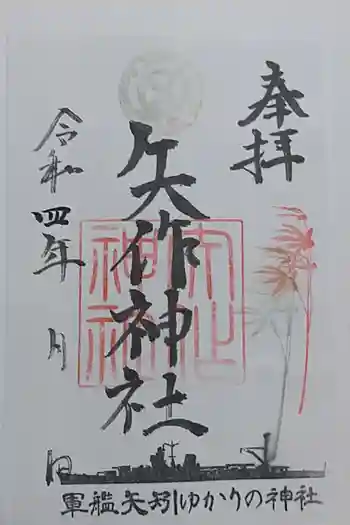 奉拝
矢作神社
令和四年 月 日
軍艦矢矧ゆかりの神社